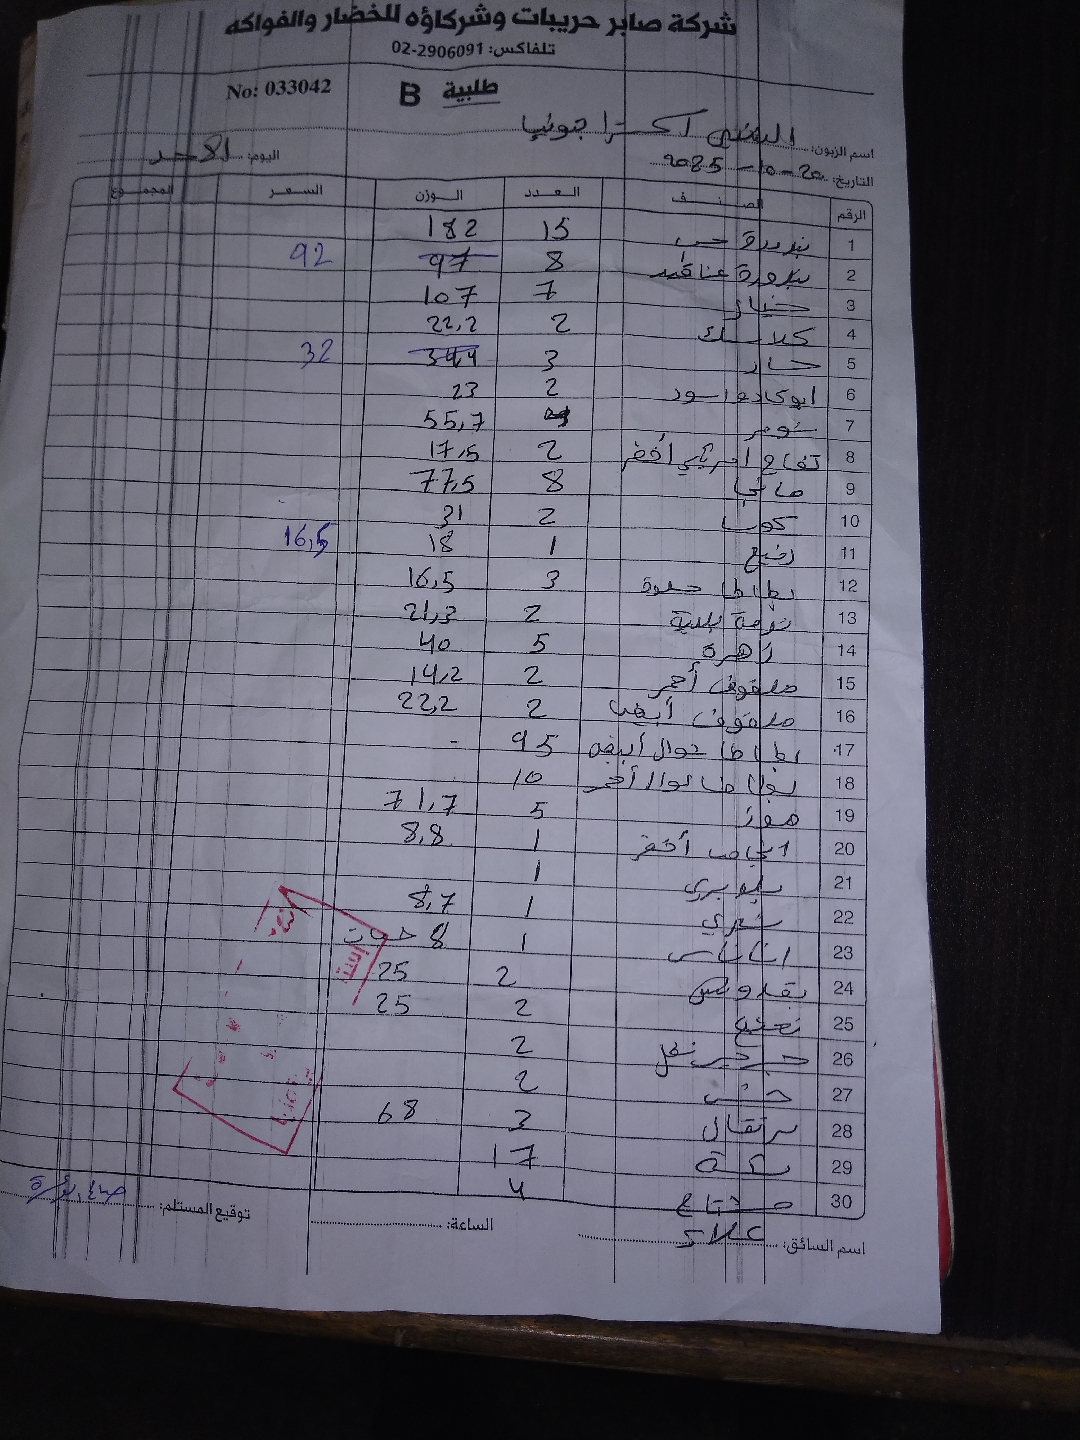 شركة صابر حريبات وشركاؤه للخضار والفواكه
تلفاكس: 02-2906091
No: 033042 B طلبية
اسم الزبون: اكسترا جونيا
اليوم: الأحد
التاريخ: 20-10-2025
الرقم الصنف العدد الوزن السعر المجموع
1 بندورة حب 15 182
2 بندورة عناقيد 8 97 92
3 خيار 7 107
4 كلاسك 2 22,2
5 حار 3 34,4 32
6 افوكادو اسود 2 23
7 بومر 55,7
8 تفاح امريكي أخضر 2 17,5
9 8 77,5
10 كوسا 2 31
11 رفيع 1 18 16,5
12 بطاطا حلوة 3 16,5
13 ثومة بلدية 2 21,3
14 زهرة 5 40
15 ملفوف أحمر 2 14,2
16 ملفوف أبيض 2 22,2
17 بطاطا شوال أبيض 95 -
18 بطاطا شوال أحمر 10
19 موز 5 71,7
20 اجاص أخضر 1 8,8
21 بلوبري 1
22 شعري 1 8,7
23 اناناس 1 8 حبات
24 بقدونس 2 25
25 نعنع 2 25
26 جرجير نخل 2
27 خس 2
28 برتقال 3 68
29 17
30 4
اسم السائق: علاء
الساعة:
توقيع المستلم: